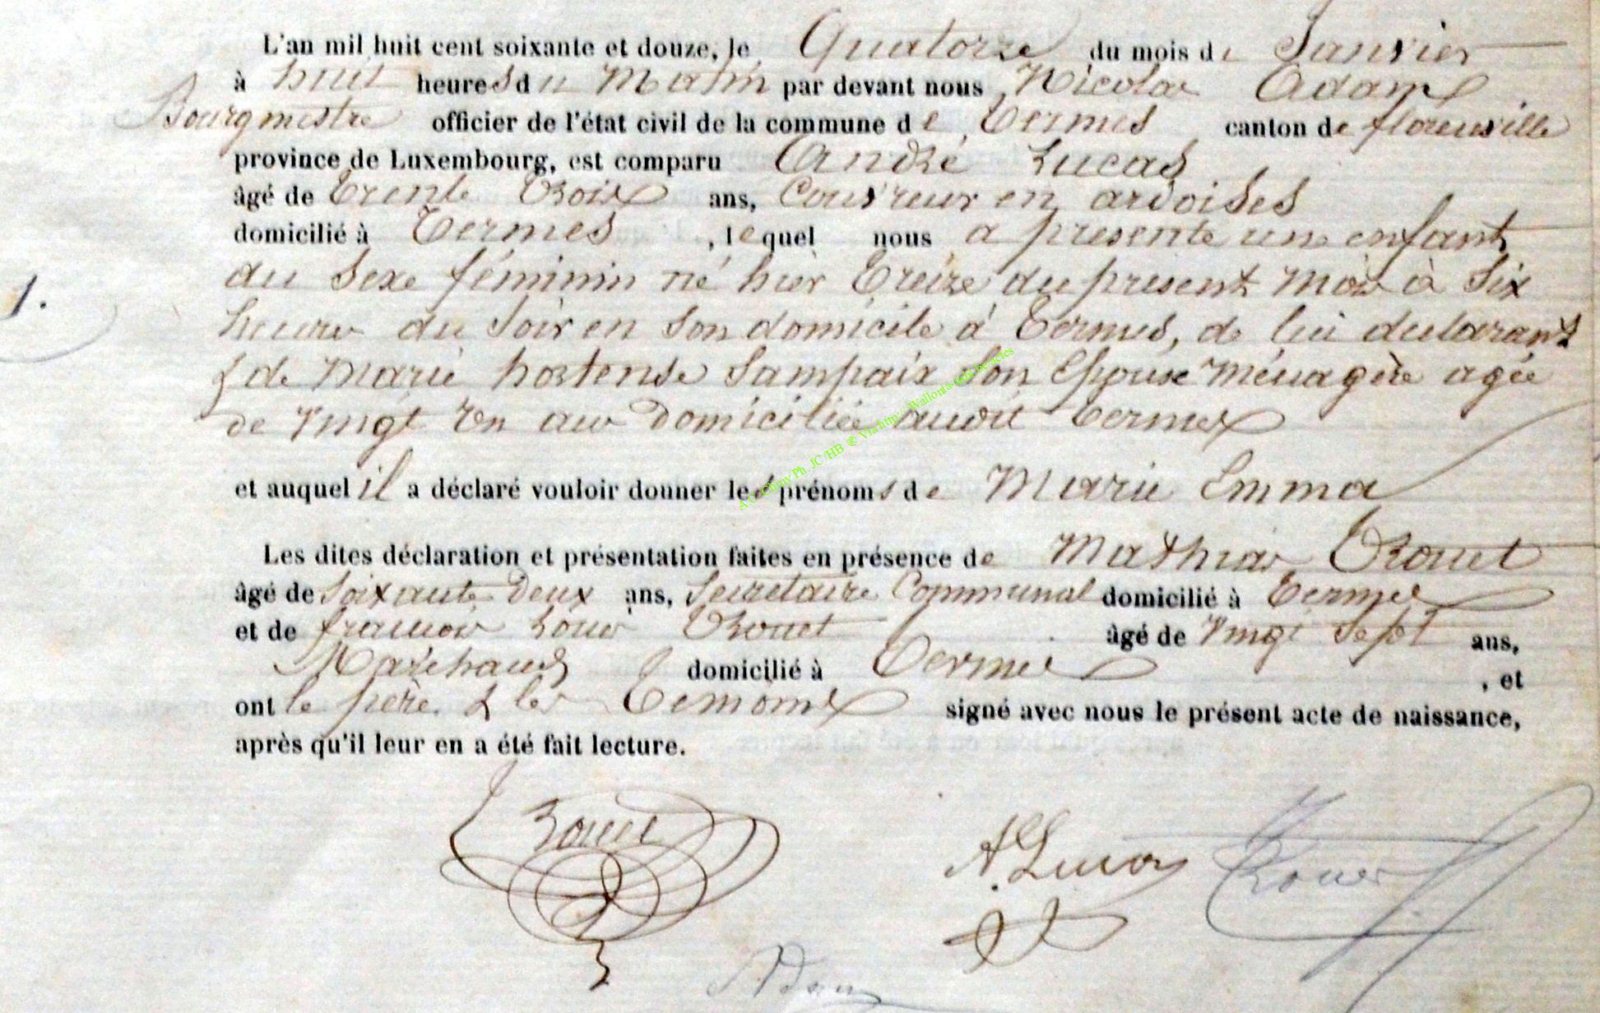 L'an mil huit cent soixante et douze, le Quatorze du mois de Janvier
à huit heures du Matin par devant nous Nicolas Adam
Bourgmestre officier de l'état civil de la commune de Termes canton de florenville
province de Luxembourg, est comparu André Lucas
âgé de Trente Trois ans, Couvreur en ardoises
domicilié à Termes, lequel nous a présenté un enfant
du Sexe féminin né hier Treize du présent Mois à Six
1.
heures du Soir en Son domicile à Termes, de lui déclarant
& de Marie hortense Sampaix Son Epouse Ménagère agée
de Vingt un ans Domiciliée audit Termes
et auquel il a déclaré vouloir donner les prénoms de Marie Emma
Les dites déclaration et présentation faites en présence de Mathias
âgé de Soixante Deux ans, Secrétaire Communal domicilié à Termes
et de françois Louis âgé de Vingt Sept ans,
Marchand domicilié à Termes, et
ont le père & les Témoins signé avec nous le présent acte de naissance,
après qu'il leur en a été fait lecture.
A. Lucas
Adam